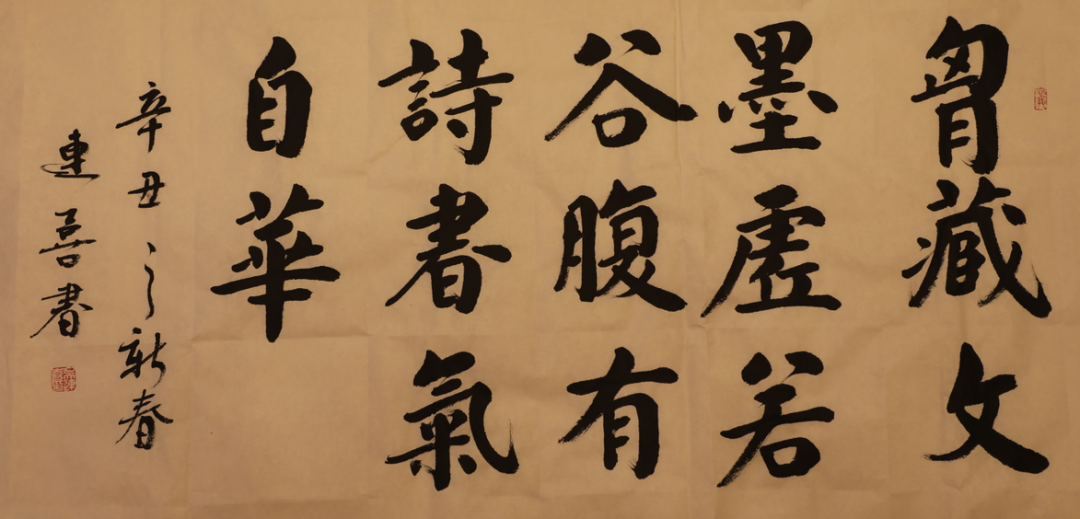 胷藏文
墨虚若
谷腹有
詩書氣
自華
辛丑之新春
連喜書